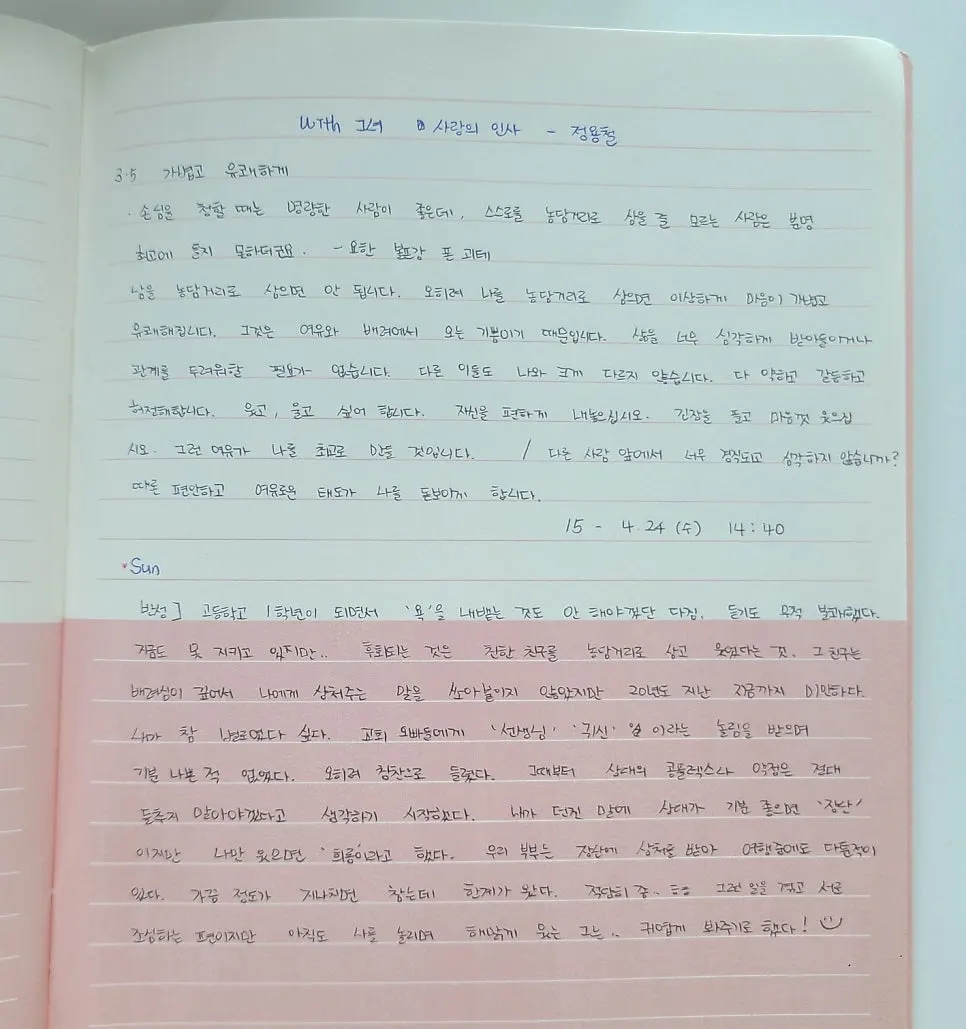 With 그녀 사랑의 인사 - 정용철
3.5 가볍고 유쾌하게
· 손님을 청할 때는 명랑한 사람이 좋은데, 스스로를 농담거리로 삼을 줄 모르는 사람은 분명
최고에 들지 못하더군요. - 요한 볼프강 폰 괴테
남을 농담거리로 삼으면 안 됩니다. 오히려 나를 농담거리로 삼으면 이상하게 마음이 가볍고
유쾌해집니다. 그것은 여유와 배려에서 오는 기쁨이기 때문입니다. 삶을 너무 심각하게 받아들이거나
관계를 두려워할 필요가 없습니다. 다른 이들도 나와 크게 다르지 않습니다. 다 약하고 갈등하고
허전해합니다. 웃고, 울고 싶어 합니다. 자신을 편하게 내놓으십시오. 긴장을 풀고 마음껏 웃으십
시오. 그런 여유가 나를 최고로 만들 것입니다. / 다른 사람 앞에서 너무 경직되고 심각하지 않습니까?
때론 편안하고 여유로운 태도가 나를 돋보이게 합니다.
15 - 4.24 (수) 14:40
*Sun
반성] 고등학교 1학년이 되면서 '욕'을 내뱉는 것도 안 해야겠단 다짐. 듣기도 무척 불쾌했다.
지금도 못 지키고 있지만.. 후회되는 것은 친한 친구를 농담거리로 삼고 웃었다는 것. 그 친구는
배려심이 깊어서 나에게 상처주는 말을 쏘아붙이지 않았지만 20년도 지난 지금까지 미안하다.
내가 참 별로였다 싶다. 교회 오빠들에게 '선생님' '귀신' 이라는 놀림을 받으며
기분 나쁜 적 없었다. 오히려 칭찬으로 들렸다. 그때부터 상대의 콤플렉스나 약점은 절대
들추지 말아야겠다고 생각하기 시작했다. 내가 던진 말에 상대가 기분 좋으면 '장난'
이지만 나만 웃으면 '희롱'이라고 했다. 우리 부부는 장난에 상처를 받아 여행중에도 다툰적이
있다. 가끔 정도가 지나치면 참는데 한계가 왔다. 적당히 좀.. ㅡㅡ 그런 일을 겪고 서로
조심하는 편이지만 아직도 나를 놀리며 해맑게 웃는 그는.. 귀엽게 봐주기로 했다!